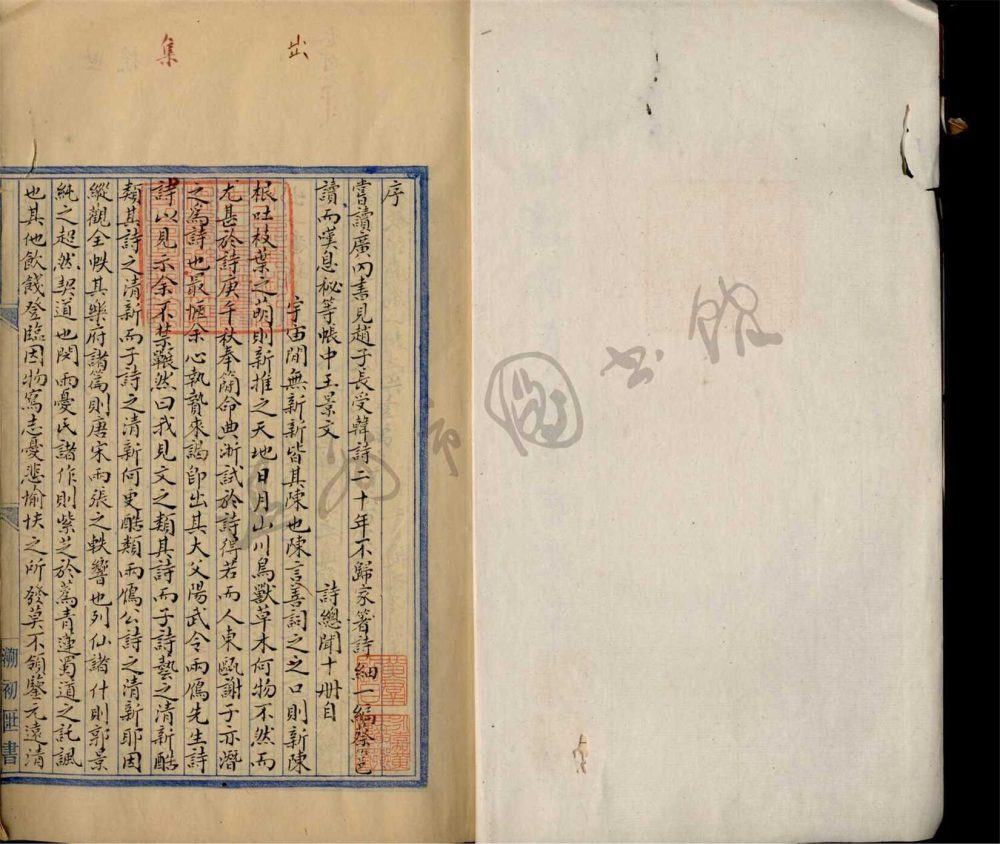 出集
序
嘗讀廣內書見趙子長受韓詩二十年不歸家箸詩細一編蔡邕
讀而嘆息秘等帳中王景文 詩總聞十冊自
宇宙間無新新皆其陳也陳言善詞之之口則新陳
根吐枝葉之萌則新推之天地日月山川鳥獸草木何物不然而
尤甚於詩庚午秋奉簡命典浙試於詩得若而人東甌謝子亦潛
之為詩也最愜余心執贄來謁即出其大父陽武令雨僞先生詩
詩以見示余不禁囅然曰我見文之類其詩而子詩藝之清新酷
類其詩之清新而子詩之清新何更酷類雨僞公詩之清新耶因
縱觀全帙其樂府諸篇則唐宋兩張之軼響也列仙諸什則郭景
純之超然契道也閔雨憂氏諸作則紫芝於蔿青蓮蜀道之託諷
也其他飲餞登臨因物寫志憂悲愉快之所發莫不領鑒元遠清
市圖書館